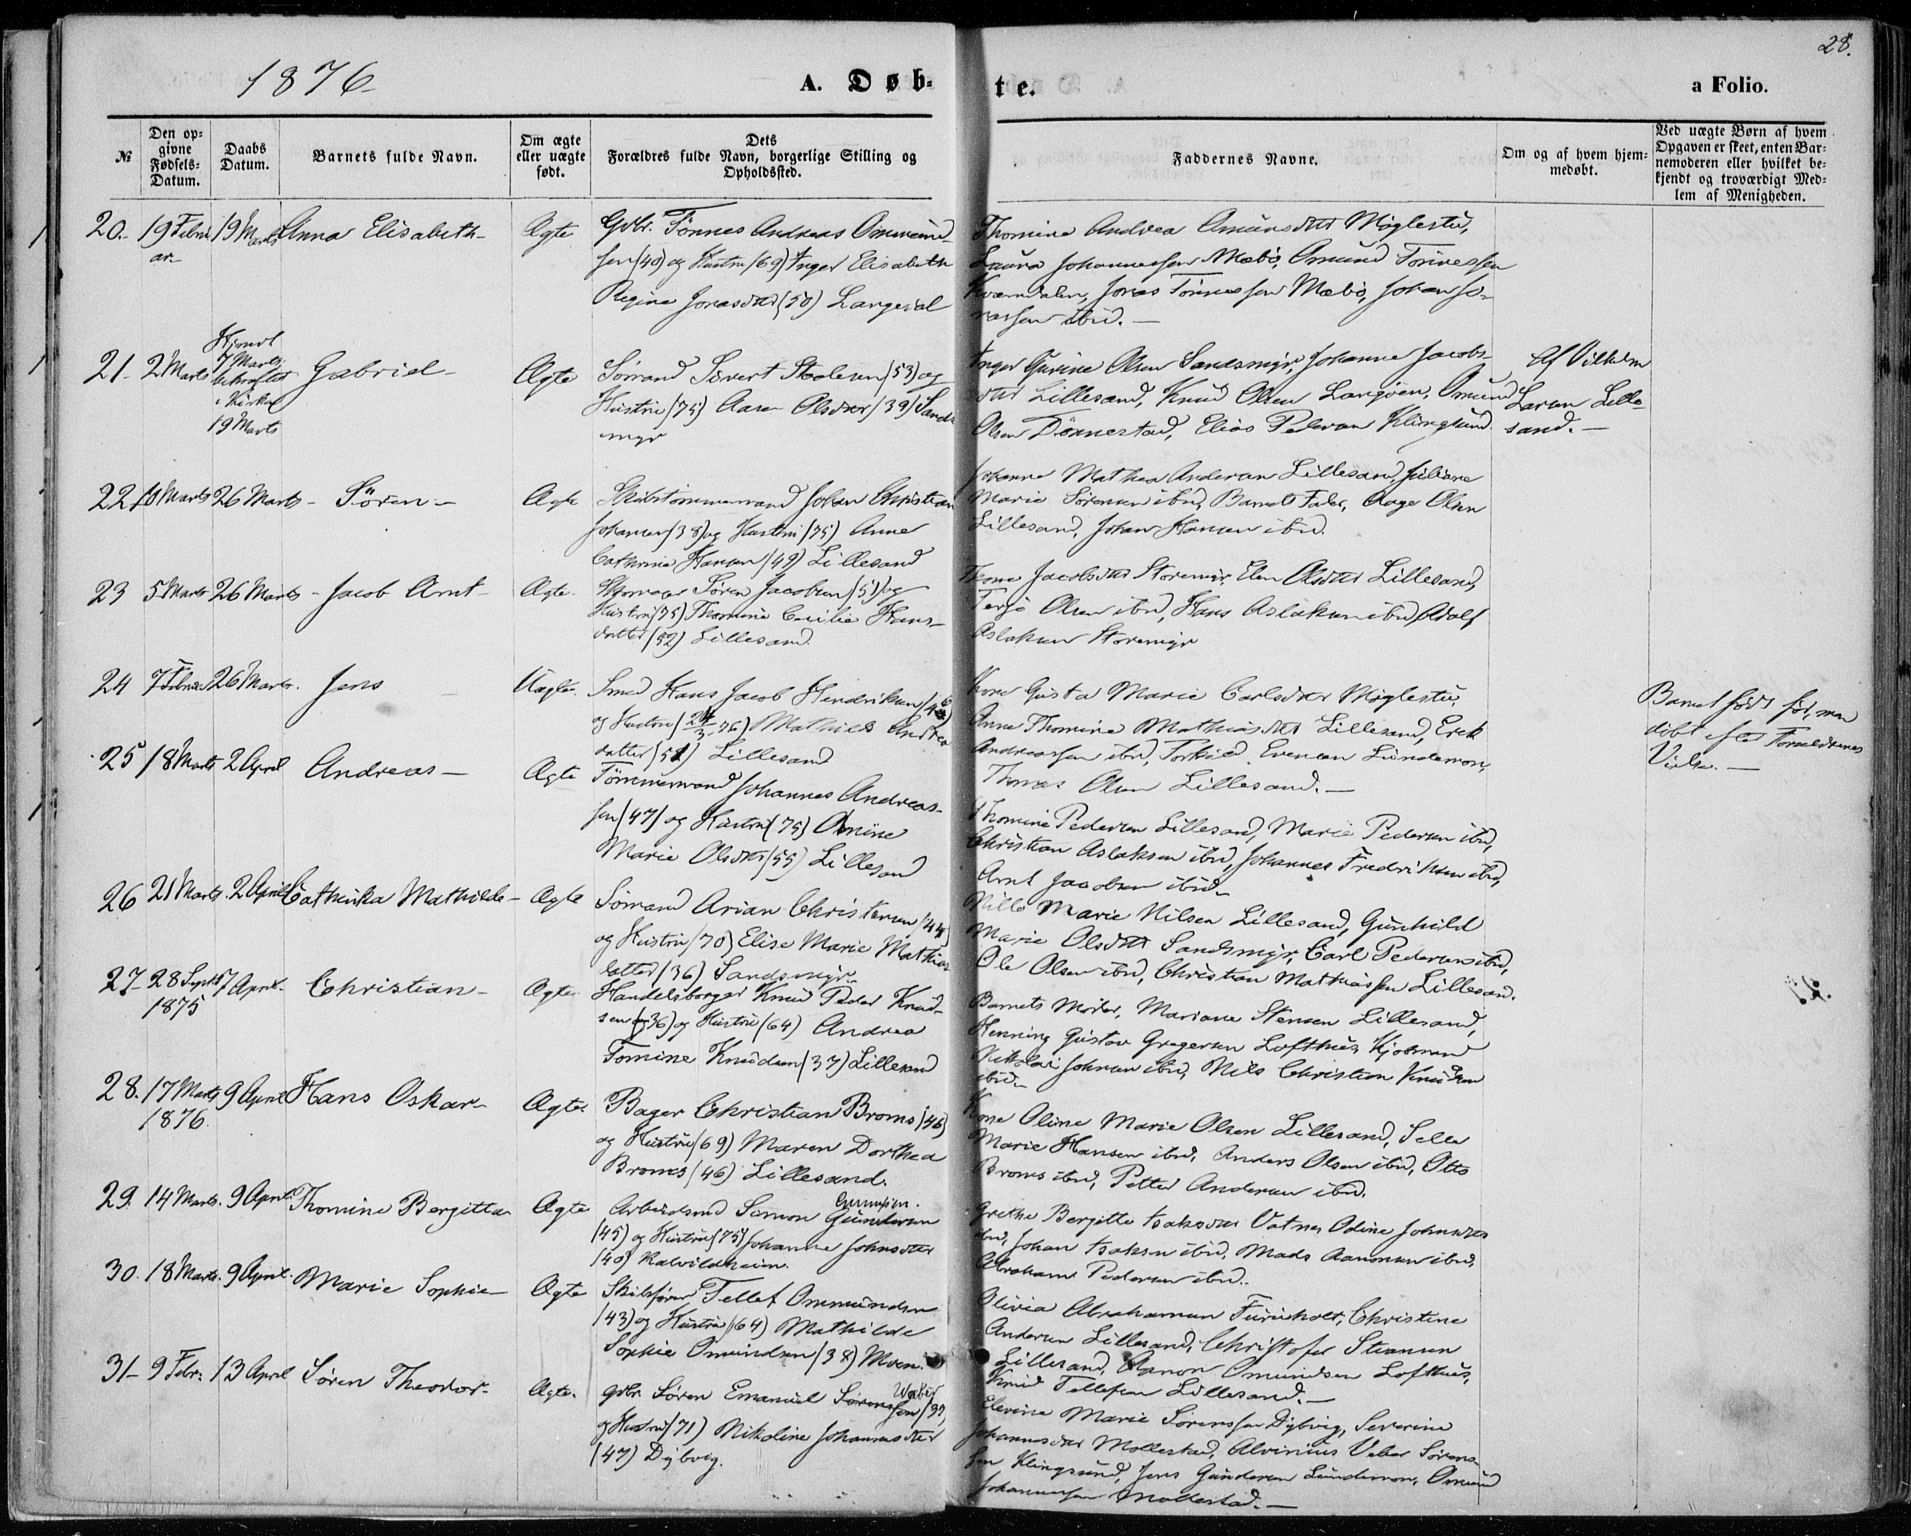 28.
1876
A. Døb-
te.
a Folio.
№
Den op-
givne
Fødsels-
Datum.
Daabs
Datum.
Barnets fulde Navn.
Om ægte
eller uægte
født.
Dets
Forældres fulde Navn, borgerlige Stilling og
Opholdssted.
Faddernes Navne.
Om og af hvem hjem-
medøbt.
Ved uægte Børn af hvem
Opgaven er skeet, enten Bar-
nemoderen eller hvilket be-
kjendt og troværdigt Med-
lem af Menigheden.
20. 19 Febru 19 Marts Anna Elisabeth Ægte Gdbr. Tønnes Andreas Ommund-
ar sen (40) og Hustru (69) Inger Elisabeth
Regine Jonasdtr (50) Langedal
Thomine Andrea Amunsdttr Møglestu,
Laura Johannessen Mæbø, Omund Tørressen
Kverndalen, Jonas Tønnessen Mæbø, Johan Jo-
nassen ibid.
21 2 Marts Hjmdt 7 Marts bekræftet i Kirken 19 Marts Gabriel Ægte Sømand Sivert Staalesen (53) og
Hustru (75) Aasen Olsdtr (39) Sands-
myr
Inger Gurine Olsen Sandsmyr, Johanne Jacobs-
dttr Lillesand, Knud Olsen Langøen, Omund
Olsen Tønnestad, Elias Pedersen Klingsund.
Af Vilhelm
Larsen Lille-
sand.
22 10 Marts 26 Marts Søren Ægte Skibstømmermand Johan Christian
Johansen (38) og Hustru (75) Anne
Cathrine Hansen (49) Lillesand
Johanne Mathea Andersen Lillesand, Juliane
Marie Sørensen ibid, Barnets Fader, Aage Olsen
Lillesand, Johan Hansen ibid.
23 5 Marts 26 Marts Jacob Arnt Ægte Skomager Søren Jacobsen (51) og
Hustru (75) Thomine Cecilie Hans-
datter (52) Lillesand
Jacobsdtr Storemyr, Elen Olsdttr Lillesand,
Terje Olsen ibid, Hans Aslaksen ibid, Adolf
Aslaksen Storemyr
24 7 Febru 26 Marts Jens Uægte Smed Hans Jacob Hendriksen
og Hustru Mathilde Andrea
datter (51) Lillesand
Kone Gusta Marie Carlsdtr Møglestu,
Anne Thomine Mathiasdttr Lillesand, Erik
Andreassen ibid, Torkild Evensen Lundemoen,
Thomas Olsen Lillesand.
Barnet født før, men
døbt efter Forældrenes
Vielse.
25 18 Marts 2 April Andreas Ægte Tømmermand Johannes Andreas-
sen (47) og Hustru (75) Omine
Marie Olsdttr (55) Lillesand
Thomine Pedersen Lillesand, Marie Pedersen ibid,
Christian Aslaksen ibid, Johannes Fredriksen ibid,
Arnt Jacobsen ibid
26 21 Marts 2 April Cathinka Mathilde Ægte Sømand Arian Christensen (44)
og Hustru (70) Elise Marie Mathias
datter (36) Sandsmyr
Nille Marie Nilsen Lillesand, Gunhild
Marie Olsdtt Sandsmyr, Carl Pedersen ibid,
Ole Olsen ibid, Christian Mathiassen Lillesand.
27 28 Septbr 7 April Christian Ægte Handelsborger Knud Peder Knud-
1875 sen (36) og Hustru (64) Andrea
Tomine Knudsen (37) Lillesand
Barnets Moder, Mariane Stensen Lillesand,
Henning Gustav Gregersen Lofthus, Kjøbmand
Nikolai Johnsen ibid, Nils Christian Knudsen
ibid
28. 17 Marts 9 April Hans Oskar Ægte Bager Christian Broms (46)
1876. og Hustru (69) Maren Dorthea
Broms (46) Lillesand.
Kone Oline Marie Olsen Lillesand,
Marie Hansen ibid, Anders Olsen ibid, Otto
Broms ibid, Petter Andersen ibid.
29. 14 Marts 9 April Thomine Bergitta Ægte Arbeidsmd Simon Gundersen
(45) og Hustru (75) Johanne Johnsdtr
(40) Kalvildheim.
Grethe Bergitte Isaksdtr Vatnes Odine Johnsdtr
ibid, Johan Isaksen ibid, Mads Aanonsen ibid,
Abraham Pedersen ibid.
30. 18 Marts 9 April Marie Sophie Ægte Skibsfører Tellef Ommundsen
(43) og Hustru (64) Mathilde
Sophie Omundsen (38) Moen.
Olivia Abrahamsen Furuholt, Christine
Andersen Lillesand, Christofer
Lillesand, Aanon Omundsen Lofthus,
Knud Tellefsen Lillesand.
31 9 Febr. 13 April Søren Theodor Ægte. Gdbr. Søren Emanuel Sørensen
og Hustru (71) Nikoline Johannesdtr
(47) Dybvig.
Elevine Marie Sørenssen Dybvig, Severine
Johannesdtr Mollestad, Alvinius Veber Sørens-
sen Klingsund, Jens Gundersen Lundemoen, Omund
Johannessen Mollestad.